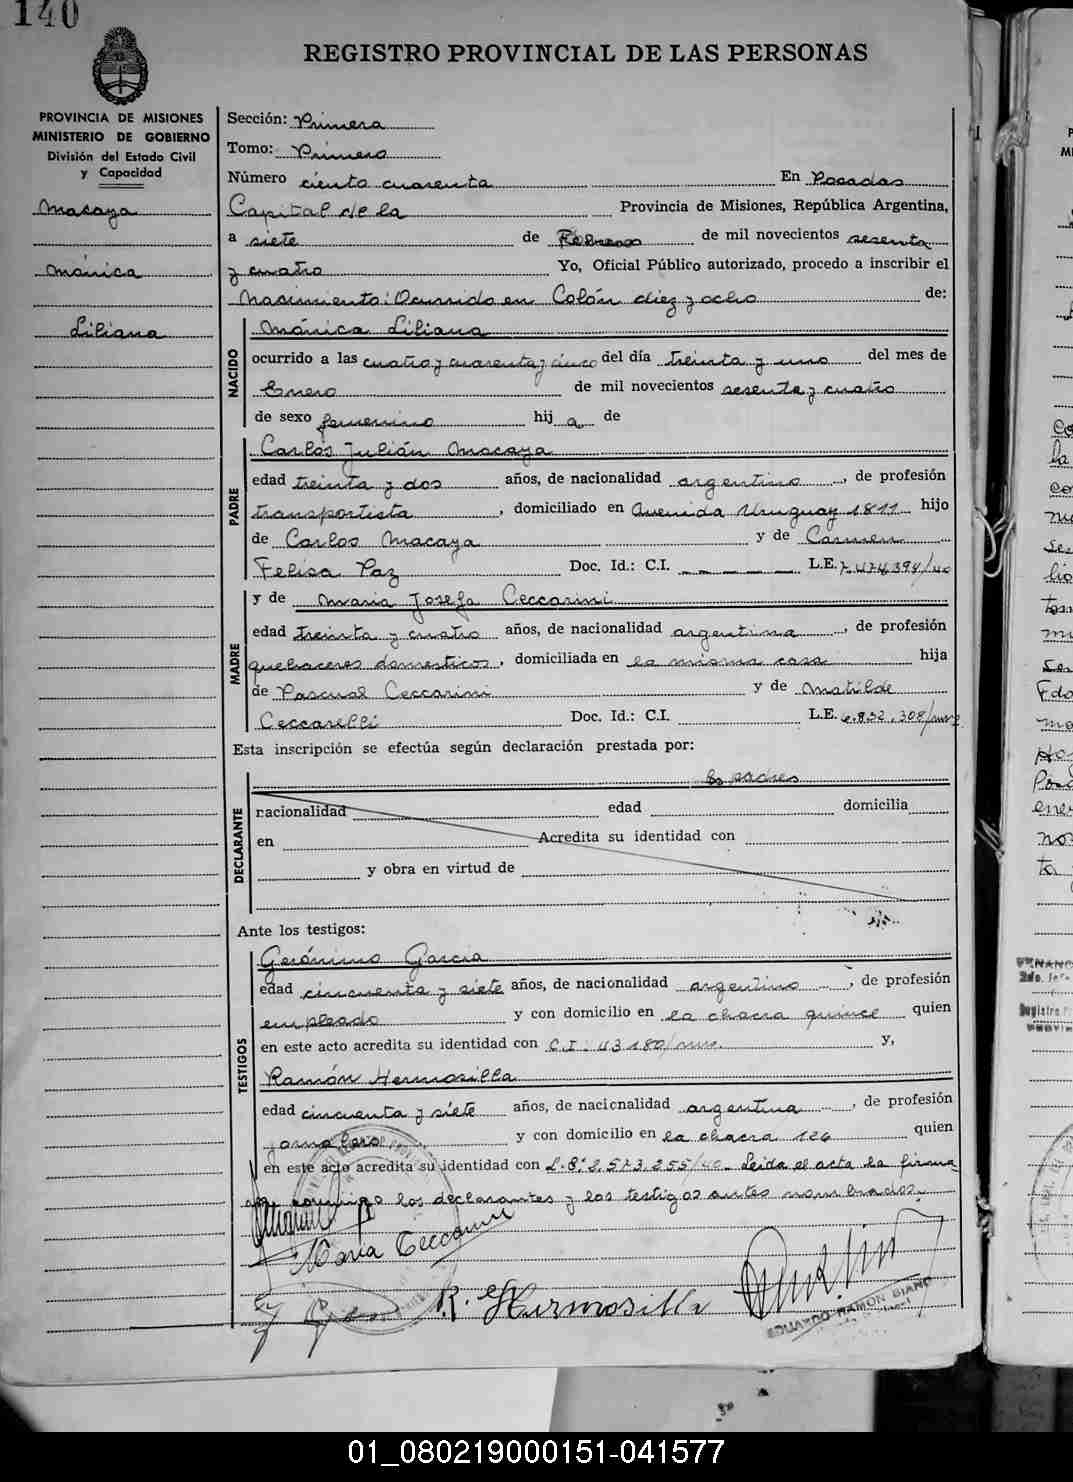 140
REGISTRO PROVINCIAL DE LAS PERSONAS
PROVINCIA DE MISIONES
MINISTERIO DE GOBIERNO
División del Estado Civil
y Capacidad
Macaya
Mónica
Liliana
Sección: Primera
Tomo: Primero
Número ciento cuarenta En Posadas
Capital de la Provincia de Misiones, República Argentina,
a siete de Febrero de mil novecientos sesenta
y cuatro Yo, Oficial Público autorizado, procedo a inscribir el
Nacimiento: Ocurrido en Colón diez y ocho de:
NACIDO
Mónica Liliana
ocurrido a las cuatro y cuarenta y cinco del día treinta y uno del mes de
Enero de mil novecientos sesenta y cuatro
de sexo femenino hij a de
PADRE
Carlos Julián Macaya
edad treinta y dos años, de nacionalidad argentino, de profesión
transportista, domiciliado en Avenida Uruguay 1811 hijo
de Carlos Macaya y de Carmen
Felisa Paz Doc. Id.: C.I. — — — — — L.E. 7.474.394/40
MADRE
y de Maria Josefa Ceccarini
edad treinta y cuatro años, de nacionalidad argentina, de profesión
quehaceres domesticos, domiciliada en la misma casa hija
de Pascual Ceccarini y de Matilde
Ceccarelli Doc. Id.: C.I. L.E. 6.852.308/
Esta inscripción se efectúa según declaración prestada por:
los padres
DECLARANTE
nacionalidad edad domicilia
en Acredita su identidad con
y obra en virtud de
Ante los testigos:
TESTIGOS
Gerónimo Garcia
edad cincuenta y siete años, de nacionalidad argentino, de profesión
empleado y con domicilio en la chacra quince quien
en este acto acredita su identidad con C.I: 43180/ y,
Ramón Hermosilla
edad cincuenta y siete años, de nacionalidad argentina, de profesión
jornalero y con domicilio en la chacra 126 quien
en este acto acredita su identidad con 2.573.255/40. Leida el acta la firman
conmigo los declarantes y los testigos antes nombrados.
Maria Ceccarini
R. Hermosilla
EDUARDO RAMON BIANO
01_080219000151-041577